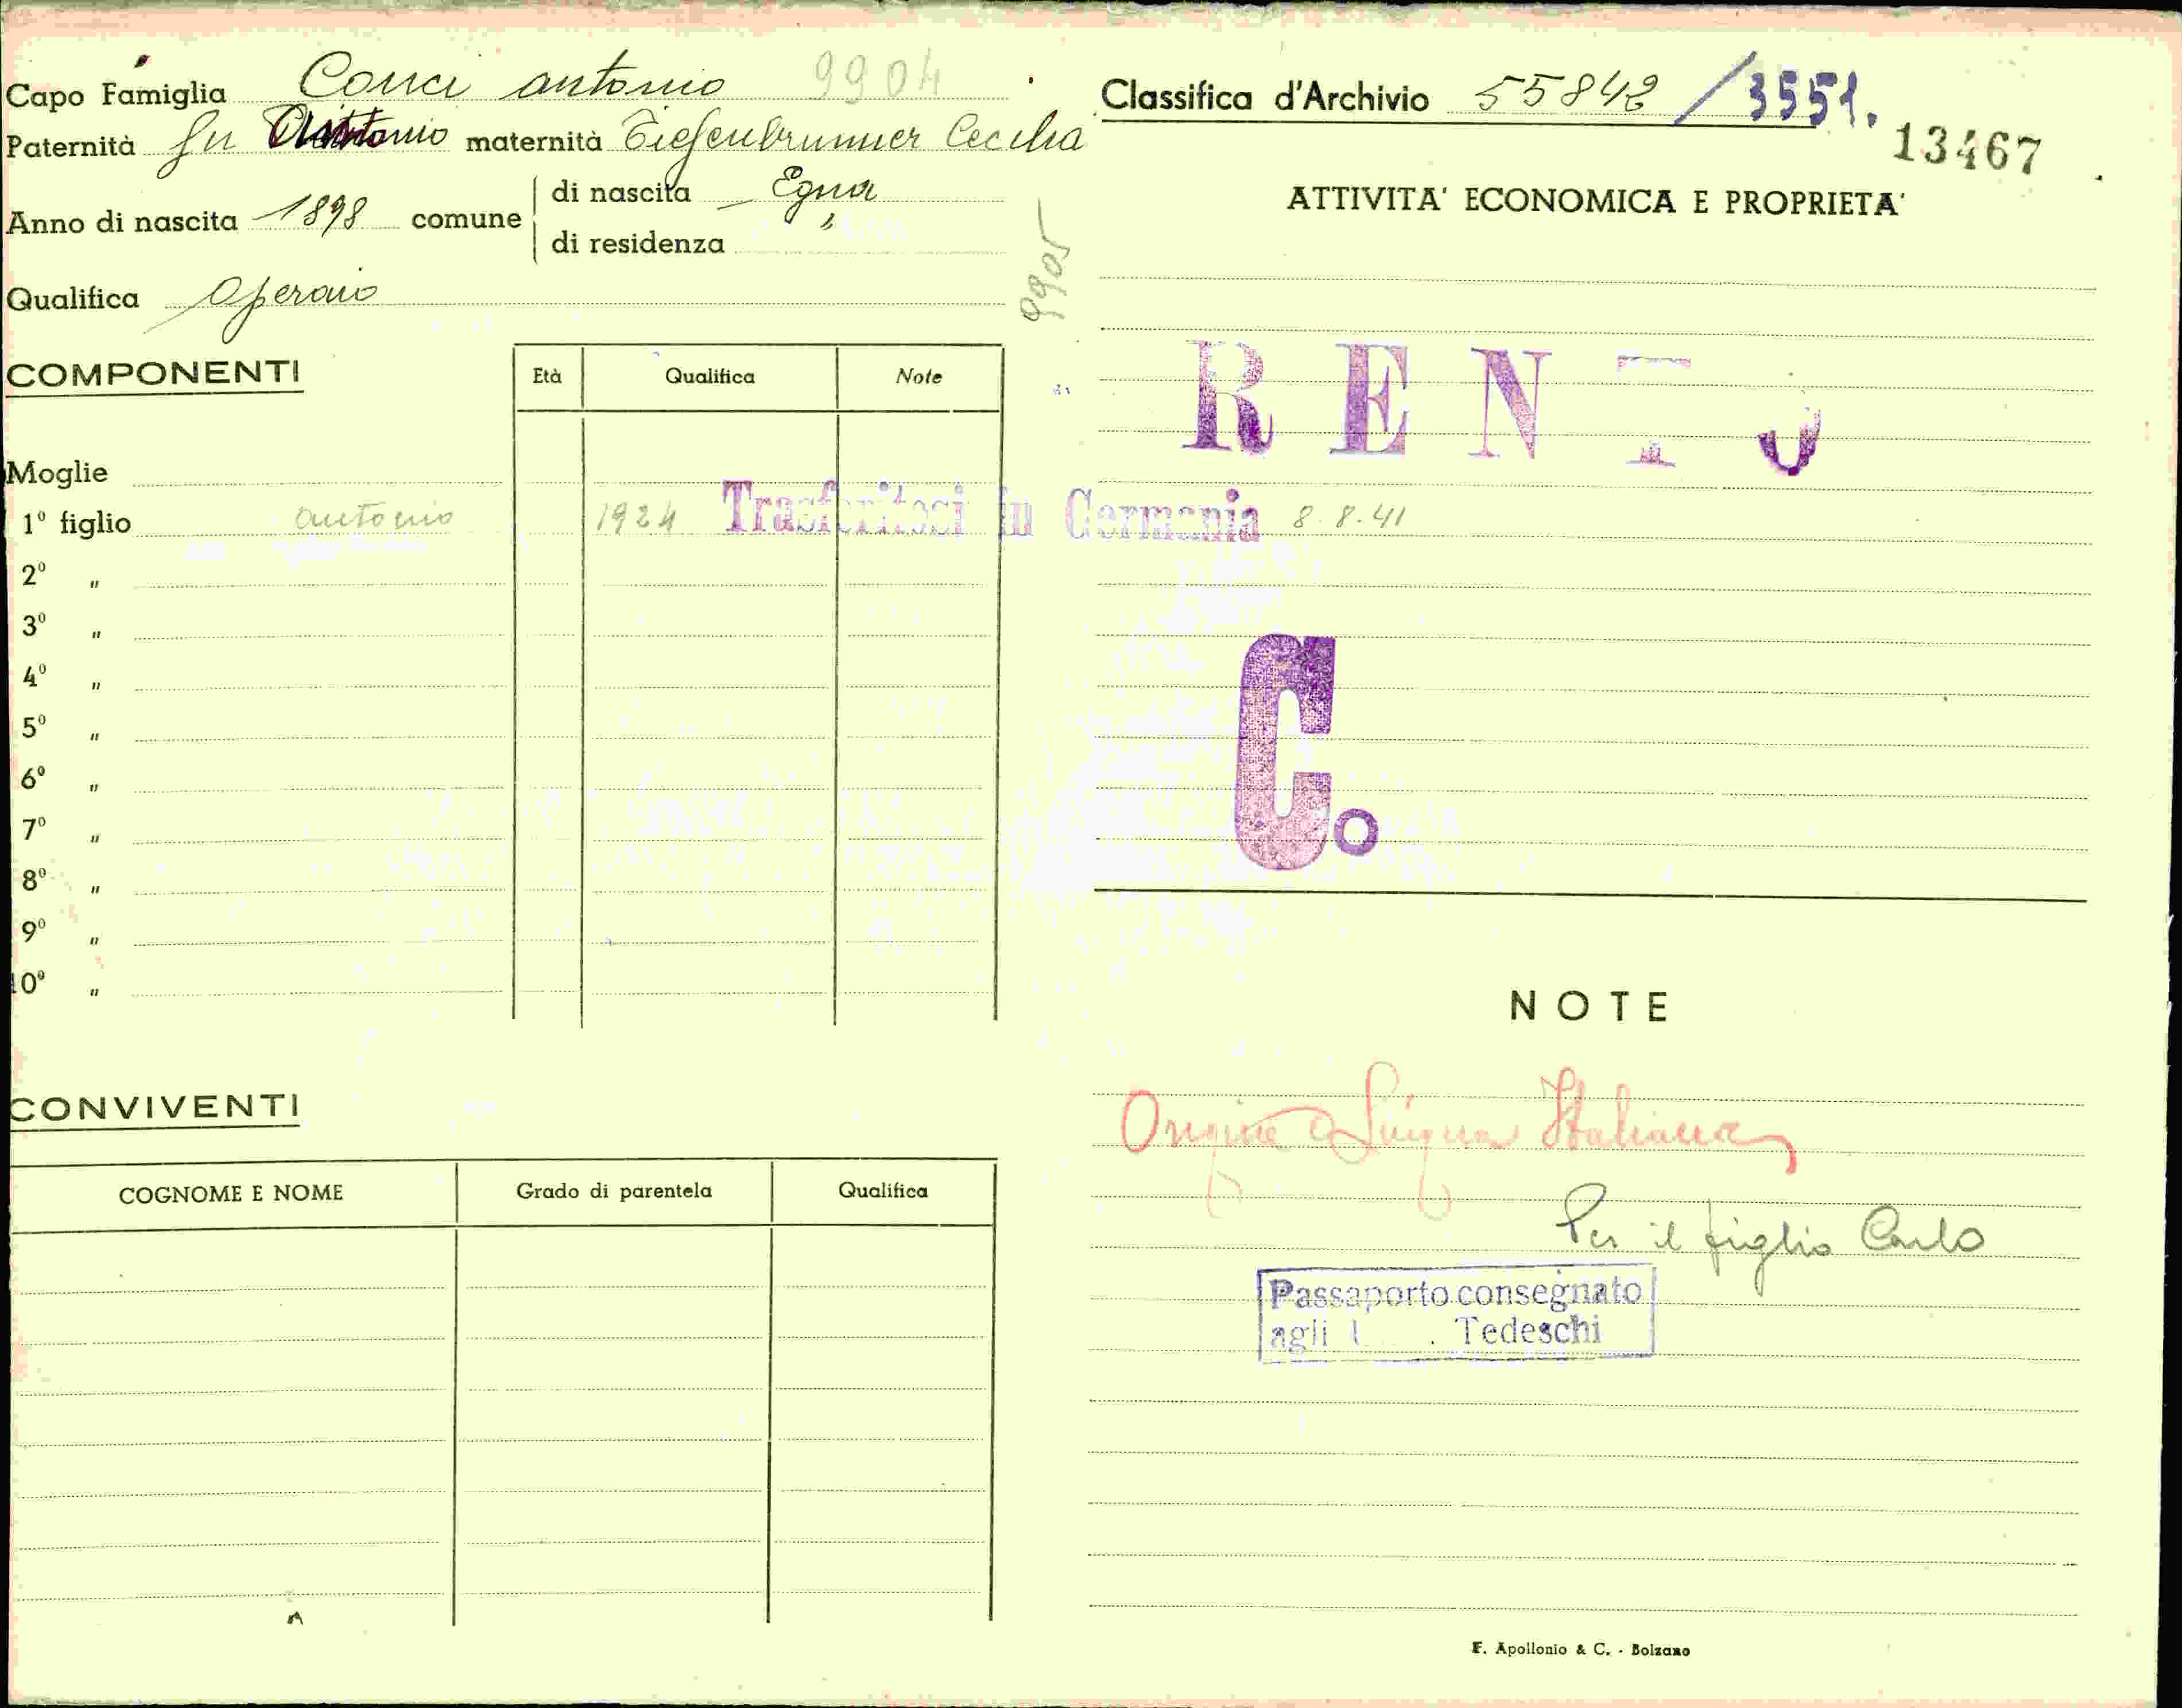 Capo Famiglia Conci Antonio 9904
Paternità fu Antonio maternità Tiefenbrunner Cecilia
Anno di nascita 1898 comune
di nascita Egna
di residenza "
Qualifica Operaio
9905
COMPONENTI
Età Qualifica Note
Moglie
1º figlio Antonio 1924 Trasferitosi in Germania 8.8.41
2º "
3º "
4º "
5º "
6º "
7º "
8º "
9º "
10º "
CONVIVENTI
COGNOME E NOME Grado di parentela Qualifica
Classifica d'Archivio 55842 / 3551.
13467
ATTIVITA' ECONOMICA E PROPRIETA'
RENTO
C.
NOTE
Origine e Lingua Italiana
Per il figlio Carlo
Passaporto consegnato
agli Tedeschi
F. Apollonio & C. - Bolzano